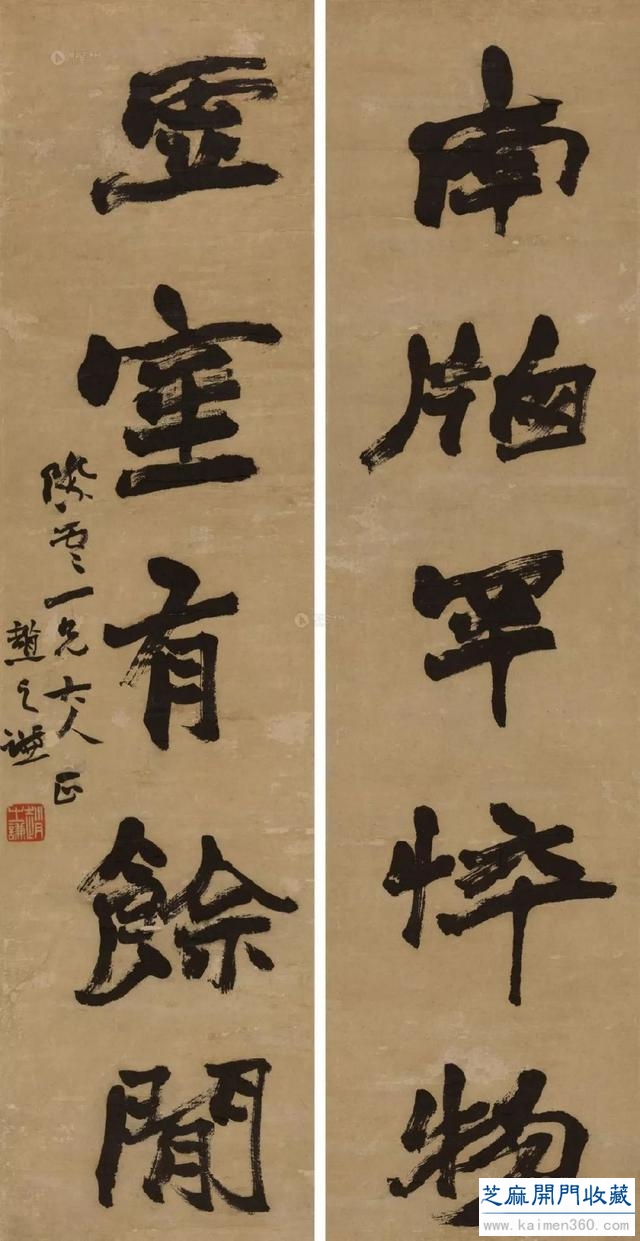 南牕罕悴物
虛室有餘閒
際雲一兄大人正
趙之謙
芝麻開門收藏
www.kaimen360.com